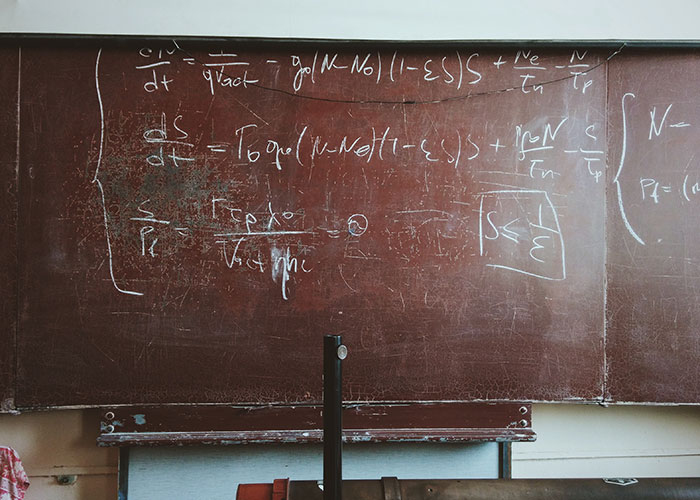 dN/dt = I/(qVact) - g₀(N-N₀)(1-εS)S + Ne/τn - N/τp
dS/dt = Γ₀g₀(N-N₀)(1-εS)S + N/τn - S/τp
S/Pf = Γτpλ₀/(Vact ηhc) =
S ≤ 1/ε
N =
Pf = (